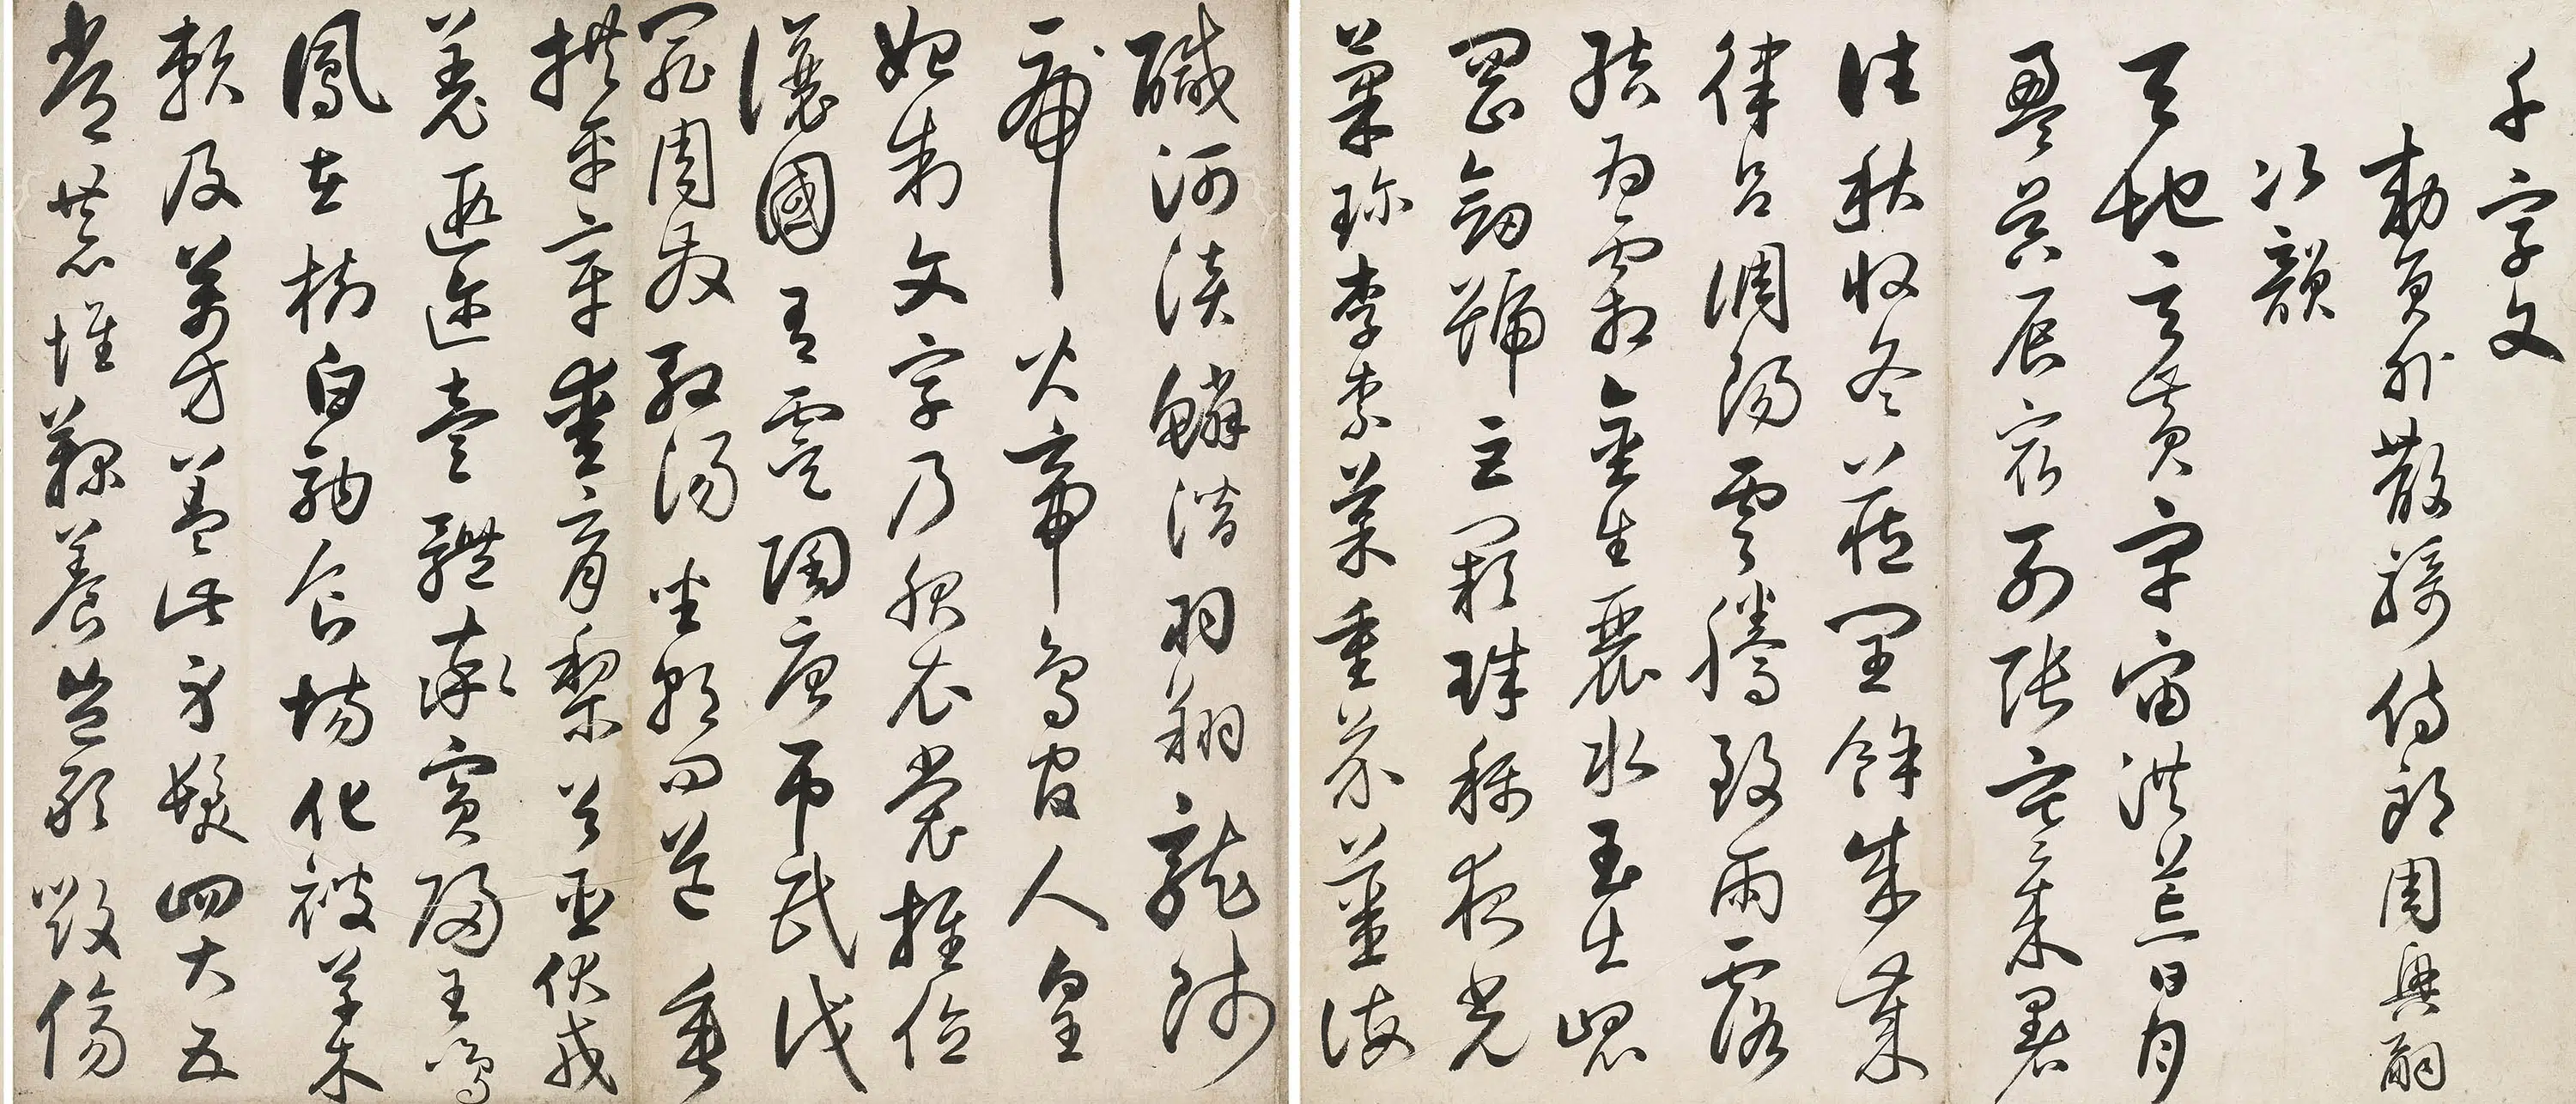 千字文
勅員外散騎侍郎周興嗣
次韻
天地玄黃宇宙洪荒日月
盈昃辰宿列張寒來暑
往秋收冬藏閏餘成歲
律呂調陽雲騰致雨露
結為霜金生麗水玉出崑
岡劍號巨闕珠稱夜光
菓珍李柰菜重芥薑海
鹹河淡鱗潛羽翔龍師
帝火帝鳥官人皇
始制文字乃服衣裳推位
讓國有虞陶唐弔民伐
罪周發殷湯坐朝問道垂
拱平章愛育黎首臣伏戎
羌遐邇壹體率賓歸王鳴
鳳在樹白駒食場化被草木
賴及萬方蓋此身髮四大五
常恭惟鞠養豈敢毀傷